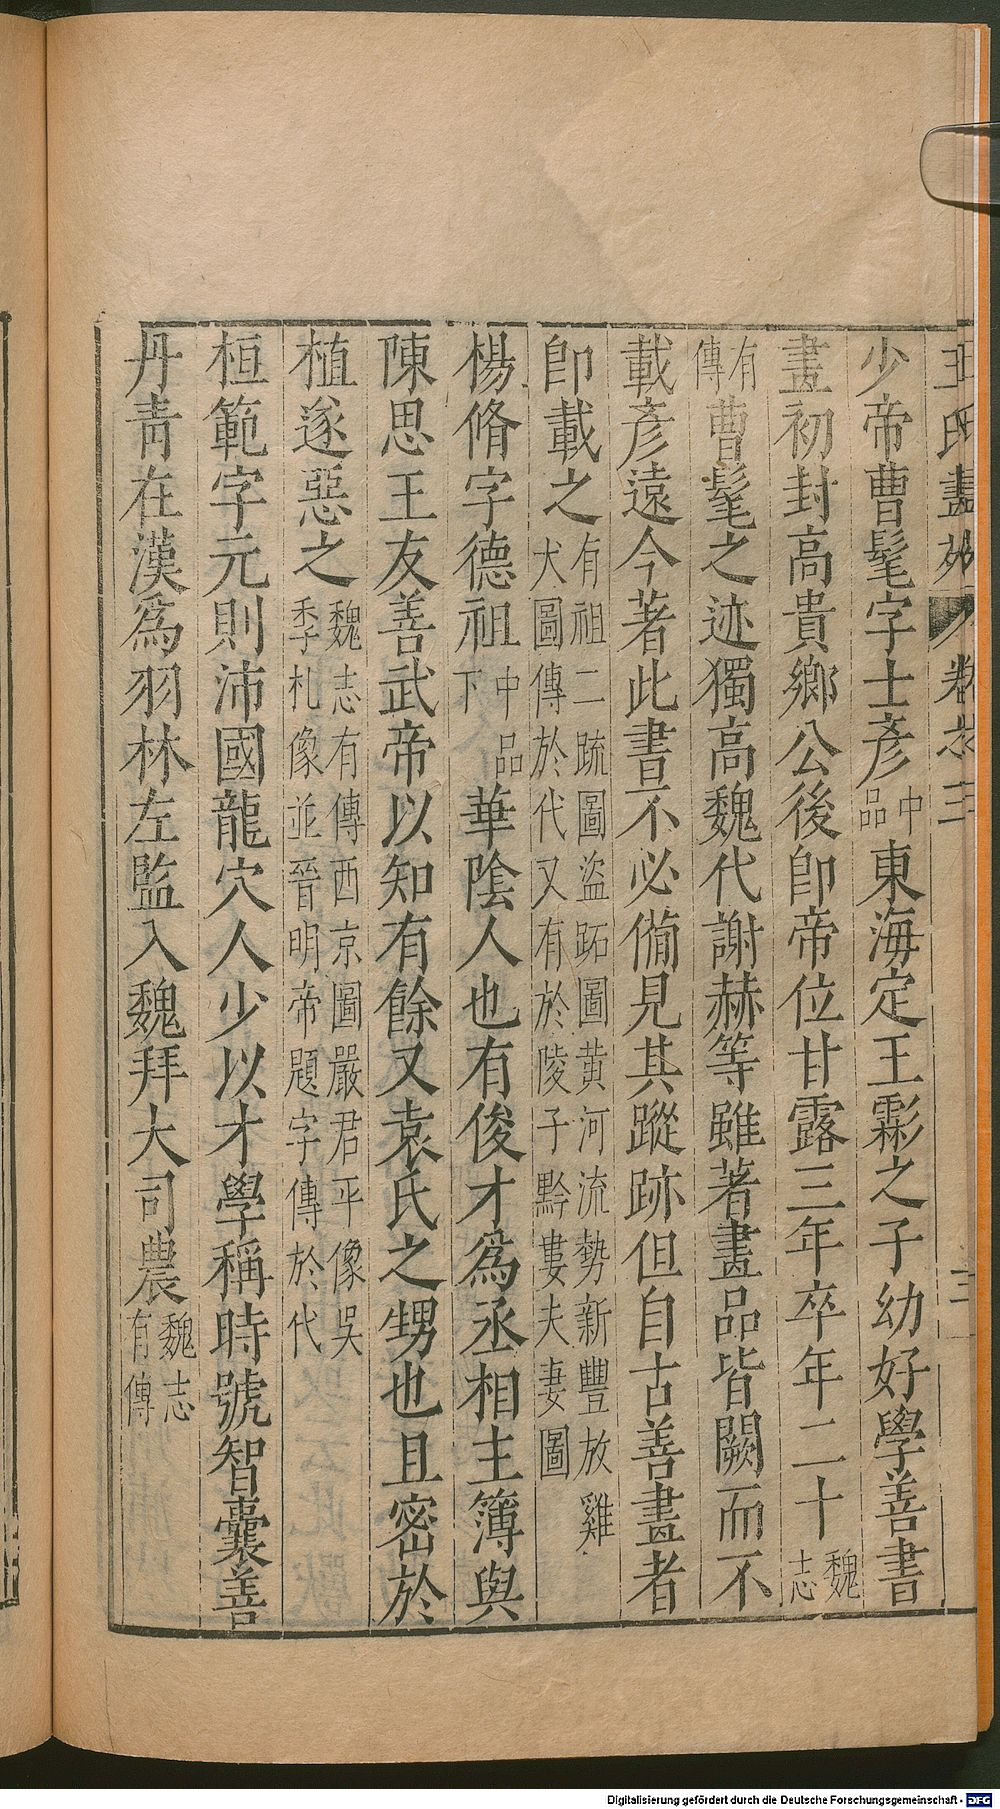 王氏畫苑 卷之三 三
少帝曹髦字士彥中品東海定王霖之子幼好學善書
畫初封高貴鄉公後卽帝位甘露三年卒年二十魏志
有傳曹髦之迹獨高魏代謝赫等雖著畫品皆闕而不
載彥遠今著此書不必備見其蹤跡但自古善畫者
卽載之有祖二疏圖盜跖圖黃河流勢新豐放雞犬圖傳於代又有於陵子黔婁夫妻圖
楊脩字德祖中品下華陰人也有俊才爲丞相主簿與
陳思王友善武帝以知有餘又袁氏之甥也且密於
植遂惡之魏志有傳西京圖嚴君平像吳季札像並晉明帝題字傳於代
桓範字元則沛國龍穴人少以才學稱時號智囊善
丹青在漢爲羽林左監入魏拜大司農魏志有傳
Digitalisierung gefördert durch die Deutsche Forschungsgemeinschaft - DFG